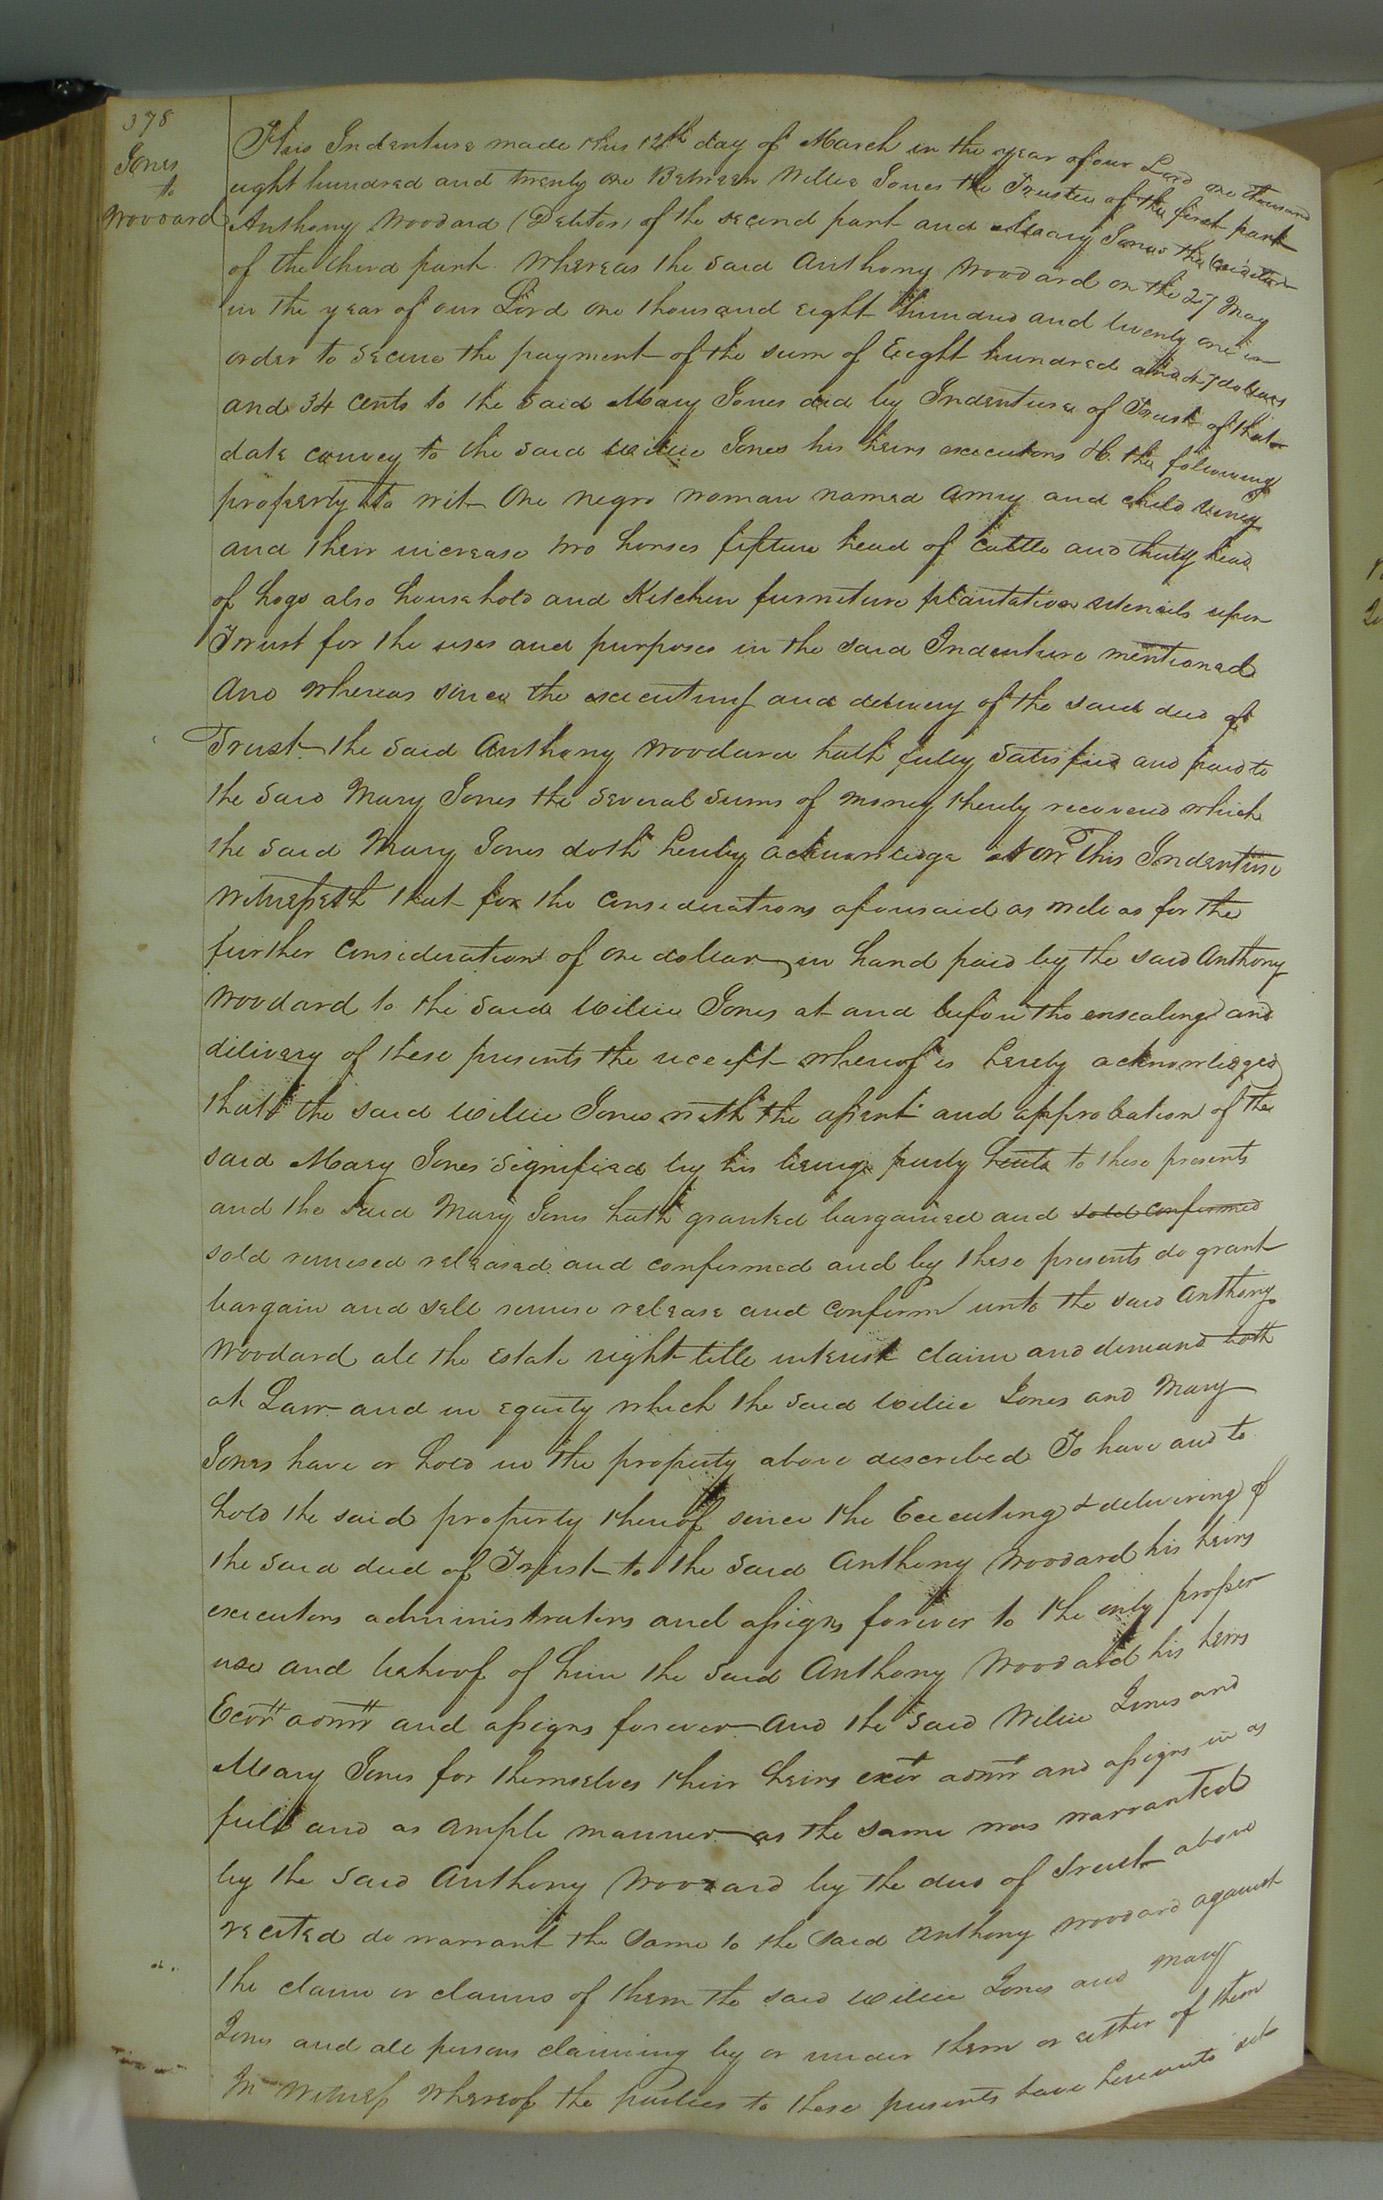 378
Jones
to
Woodard
This Indenture made this 12th day of March in the year of our Lord one thousand
eight hundred and twenty one Between Willie Jones the Trustee of the first part
Anthony Woodard (Debitor) of the second part and Mary Jones the Creditor
of the third part. Whereas the said Anthony Woodard on the 27 May
in the year of our Lord one thousand eight hundred and twenty one in
order to secure the payment of the sum of Eeight hundred and 47 dollars
and 34 cents to the said Mary Jones did by Indenture of Trust of that
date convey to the said Willie Jones his heirs executors &c. the following
property to wit One negro woman named Amy and child
and their increase two horses fifteen head of Cattle and thirty head
of hogs also household and Kitchen furneture plantation utencils upon
Trust for the uses and purposes in the said Indenture mentioned
And whereas since the executing and delivery of the said deed of
Trust the said Anthony Woodard hath fully satisfied and paid to
the said Mary Jones the several sums of money thereby recovered which
the said Mary Jones doth hereby acknowledge Now This Indenture
Witnesseth that for the considerations aforesaid as well as for the
further consideration of one dollar in hand paid by the said Anthony
Woodard to the said Willie Jones at and before the ensealing and
delivery of these presents the receipt whereof is hereby acknowledged
that the said Willie Jones with the assent and approbation of the
said Mary Jones signified by his being party to these presents
and the said Mary Jones hath granted bargained and sold confirmed
sold remised released and confirmed and by these presents do grant
bargain and sell remise release and confirm unto the said Anthony
Woodard all the estate right title interest claim and demand both
at Law and in equity which the said Willie Jones and Mary
Jones have or hold in the property above described To have and to
hold the said property thereof since the Executing & delivering of
the said deed of Trust to the said Anthony Woodard his heirs
executors administrators and assigns forever to the only proper
use and behoof of him the said Anthony Woodard his heirs
Exors admrs and assigns forever And the said Willie Jones and
Mary Jones for themselves their heirs exors admrs and assigns in as
full and as ample manner as the same was warranted
by the said Anthony Woodard by the deed of Trust above
recited do warrant the same to the said Anthony Woodard against
the claim or claims of them the said Willie Jones and Mary
Jones and all persons claiming by or under them or either of them
In Witness whereof the parties to these presents have hereunto set